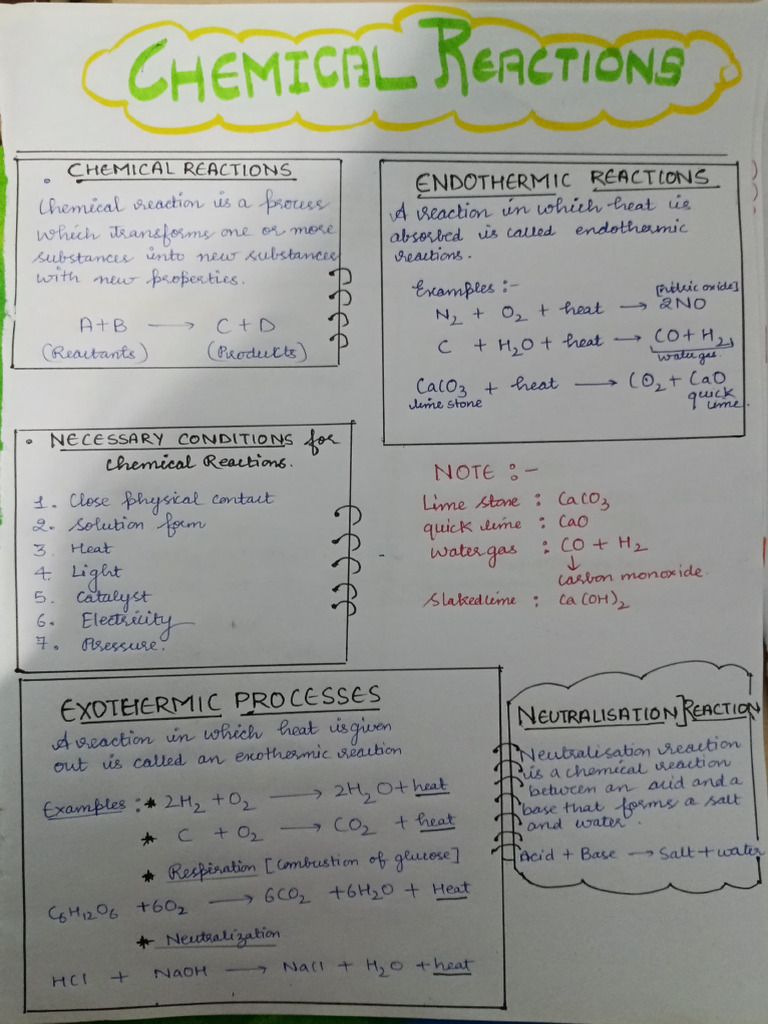 CHEMICAL REACTIONS
• CHEMICAL REACTIONS
Chemical reaction is a process
which transforms one or more
substances into new substances
with new properties.
A+B ⟶ C+D
(Reactants) (Products)
ENDOTHERMIC REACTIONS
A reaction in which heat is
absorbed is called endothermic
reactions.
Examples :-
[nitric oxide]
N₂ + O₂ + heat ⟶ 2NO
C + H₂O + heat ⟶ CO + H₂
water gas.
CaCO₃ + heat ⟶ CO₂ + CaO
lime stone quick
lime.
• NECESSARY CONDITIONS for
Chemical Reactions.
1. Close physical contact
2. Solution form
3. Heat
4. Light
5. Catalyst
6. Electricity
7. Pressure.
NOTE :-
Lime stone : CaCO₃
quick lime : CaO
water gas : CO + H₂
↓
carbon monoxide.
Slaked lime : Ca(OH)₂
EXOTHERMIC PROCESSES
A reaction in which heat is given
out is called an exothermic reaction
Examples : * 2H₂ + O₂ ⟶ 2H₂O + heat
* C + O₂ ⟶ CO₂ + heat
* Respiration [Combustion of glucose]
C₆H₁₂O₆ + 6O₂ ⟶ 6CO₂ + 6H₂O + Heat
* Neutralization
HCl + NaOH ⟶ NaCl + H₂O + heat
NEUTRALISATION REACTION
Neutralisation reaction
is a chemical reaction
between an acid and a
base that forms a salt
and water.
Acid + Base ⟶ Salt + water